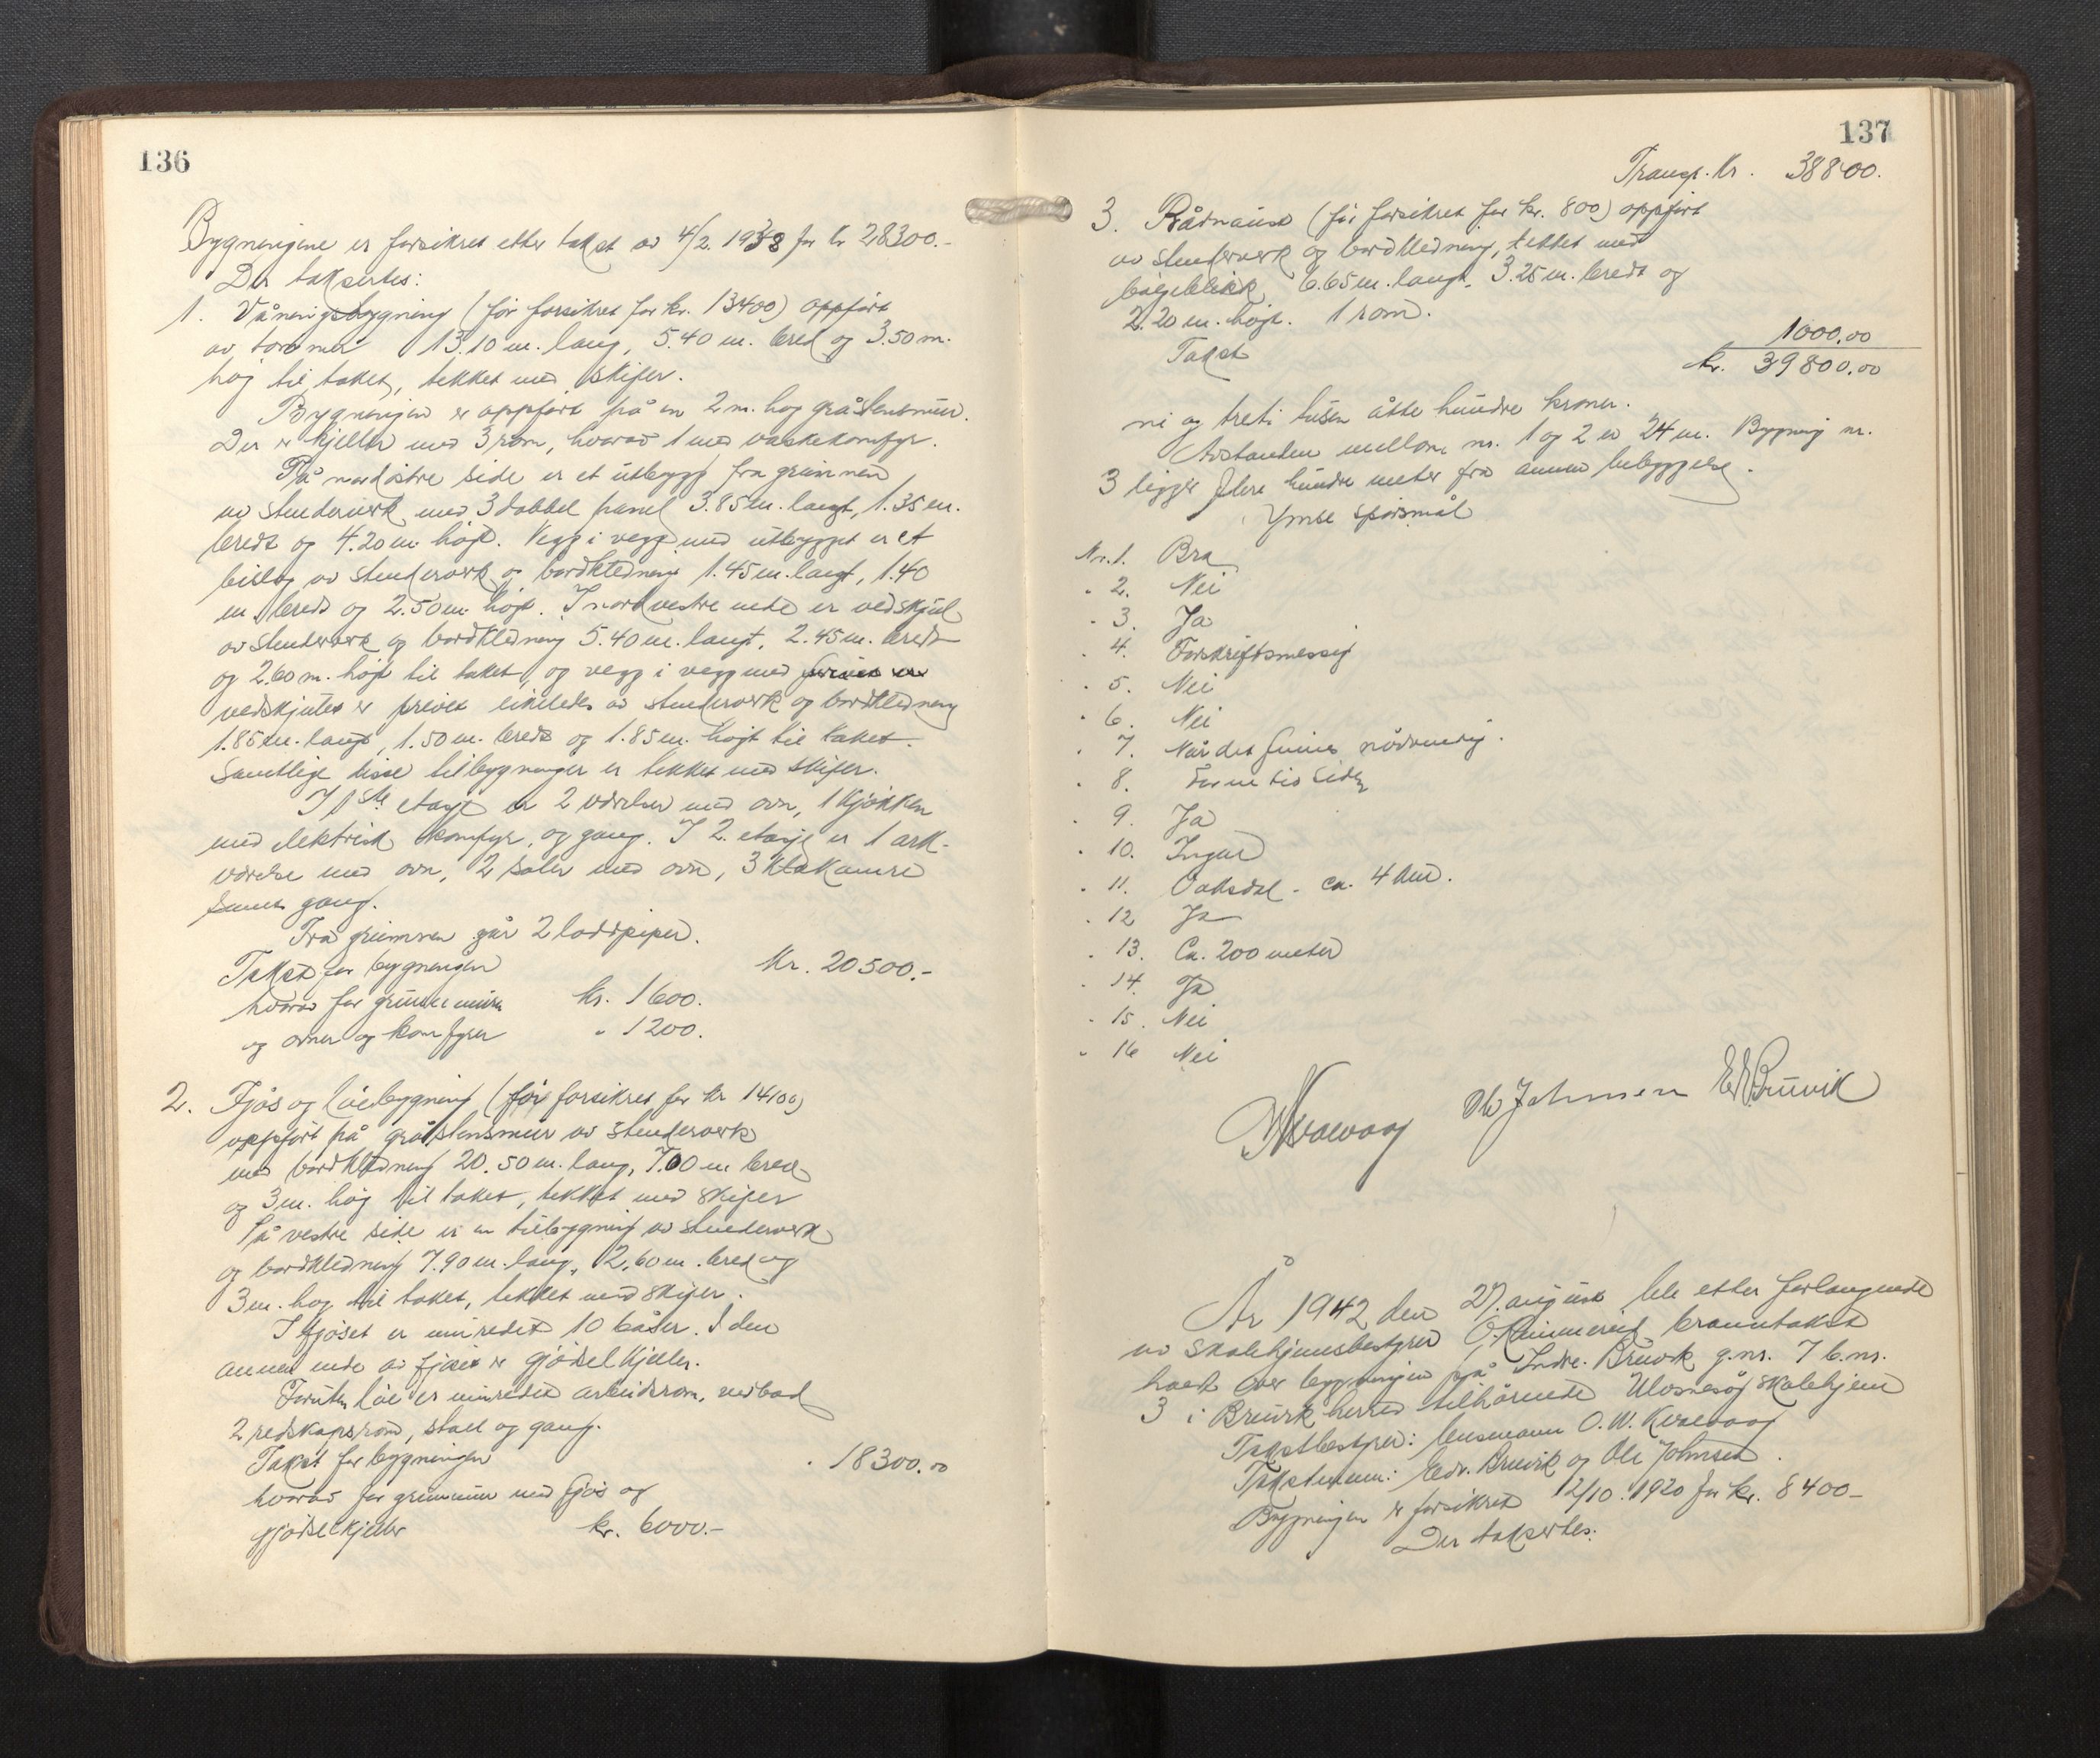 136
Bygningene er forsikret etter takst av 4/2. 1938 for kr 28300.-
Der taksertes:
1. Våningsbygning (før forsikret for kr. 13400) oppført
av tømmer 13.10 m. lang, 5.40 m. bred og 3.50 m.
høg til taket, tekket med skifer.
Bygningen er oppført på en 2 m. høg gråstensmur.
Der er kjeller med 3 rom, hvorav 1 med vaskekomfyr.
På nordøstre side er et utbygg fra grunnen
av stenderverk med 3 dobbel panel 3.85 m. langt, 1.35 m.
bredt og 4.20 m. høgt. Vegg i vegg med utbygget er et
bislag av stenderverk og bordkledning 1.45 m. langt, 1.40
m. bredt og 2.50 m. høgt. I nordvestre ende er vedskjul
av stenderverk og bordkledning 5.40 m. langt, 2.45 m. bredt
og 2.60 m. høgt til taket, og vegg i vegg med
vedskjulet er privet likeledes av stenderverk og bordkledning
1.85 m. langt, 1.50 m. bredt og 1.85 m. høgt til taket.
Samtlige disse tilbygninger er tekket med skifer.
I 1ste etage er 2 værelser med ovn, 1 kjøkken
med elektrisk komfyr, og gang. I 2. etasje er 1 ark-
værelse med ovn, 2 saler med ovn, 3 kleskamre
samt gang.
Fra grunnen går 2 loddpiper.
Takst for bygningen Kr. 20500.-
hvorav for grunnmuren kr. 1600.
og ovner og komfyrer " 1200.
2. Fjøs og løebygning (før forsikret for kr 14100)
oppført på gråstensmur av stenderverk
med bordkledning 20.50 m. lang, 7.00 m bred
og 3 m. høg til taket, tekket med skifer
På vestre side er en tilbygning av stenderverk
og bordkledning 7.90 m. lang, 2.60 m. bred og
3 m. høg til taket, tekket med skifer.
I fjøset er innredet 10 båser. I den
annen ende av fjøset er gjødselkjeller.
Foruten løe er innredet arbeidsrom, vedbod
2 redskapsrom, stall og gang.
Takst for bygningen " 18300.00
hvorav for grunnmur med fjøs og
gjødselkjeller kr. 6000.-
137
Transp. kr. 38800.
3. Båtnaust (før forsikret for kr. 800) oppført
av stenderverk og bordkledning, tekket med
bølgeblikk 6.65 m. langt, 3.25 m. bredt og
2.20 m. høgt. 1 rom.
Takst 1000.00
kr. 39800.00
ni og treti tusen åtte hundre kroner.
Avstanden mellom nr. 1 og 2 er 24 m. Bygning nr.
3 ligger flere hundre meter fra annen bebyggelse.
Ymse spørsmål
Nr. 1. Bra
" 2. Nei
" 3. Ja
" 4. Forskriftsmessig
" 5. Nei
" 6. Nei
" 7. Når det finnes nødvendig.
" 8. tid siden
" 9. Ja
" 10. Ingen
" 11. Vaksdal - ca. 4 km.
" 12 Ja
" 13. Ca. 200 meter
" 14. Ja
" 15. Nei
" 16 Nei
Kvalvaag Ole Johnsen E Bruvik
År 1942 den 27. august ble etter forlangende
av skolehjemsbestyrer branntakst
holdt over bygningen på Indre Bruvik g.nr. 7 b.nr.
3 i Bruvik herred tilhørende Ulvsnesøy skolehjem
Takstbestyrer: lensmann O. W. Kvalvaag
Takstmenn: Edv. Bruvik og Ole Johnsen.
Bygningen er forsikret 12/10. 1920 for kr. 8400-
Der taksertes: